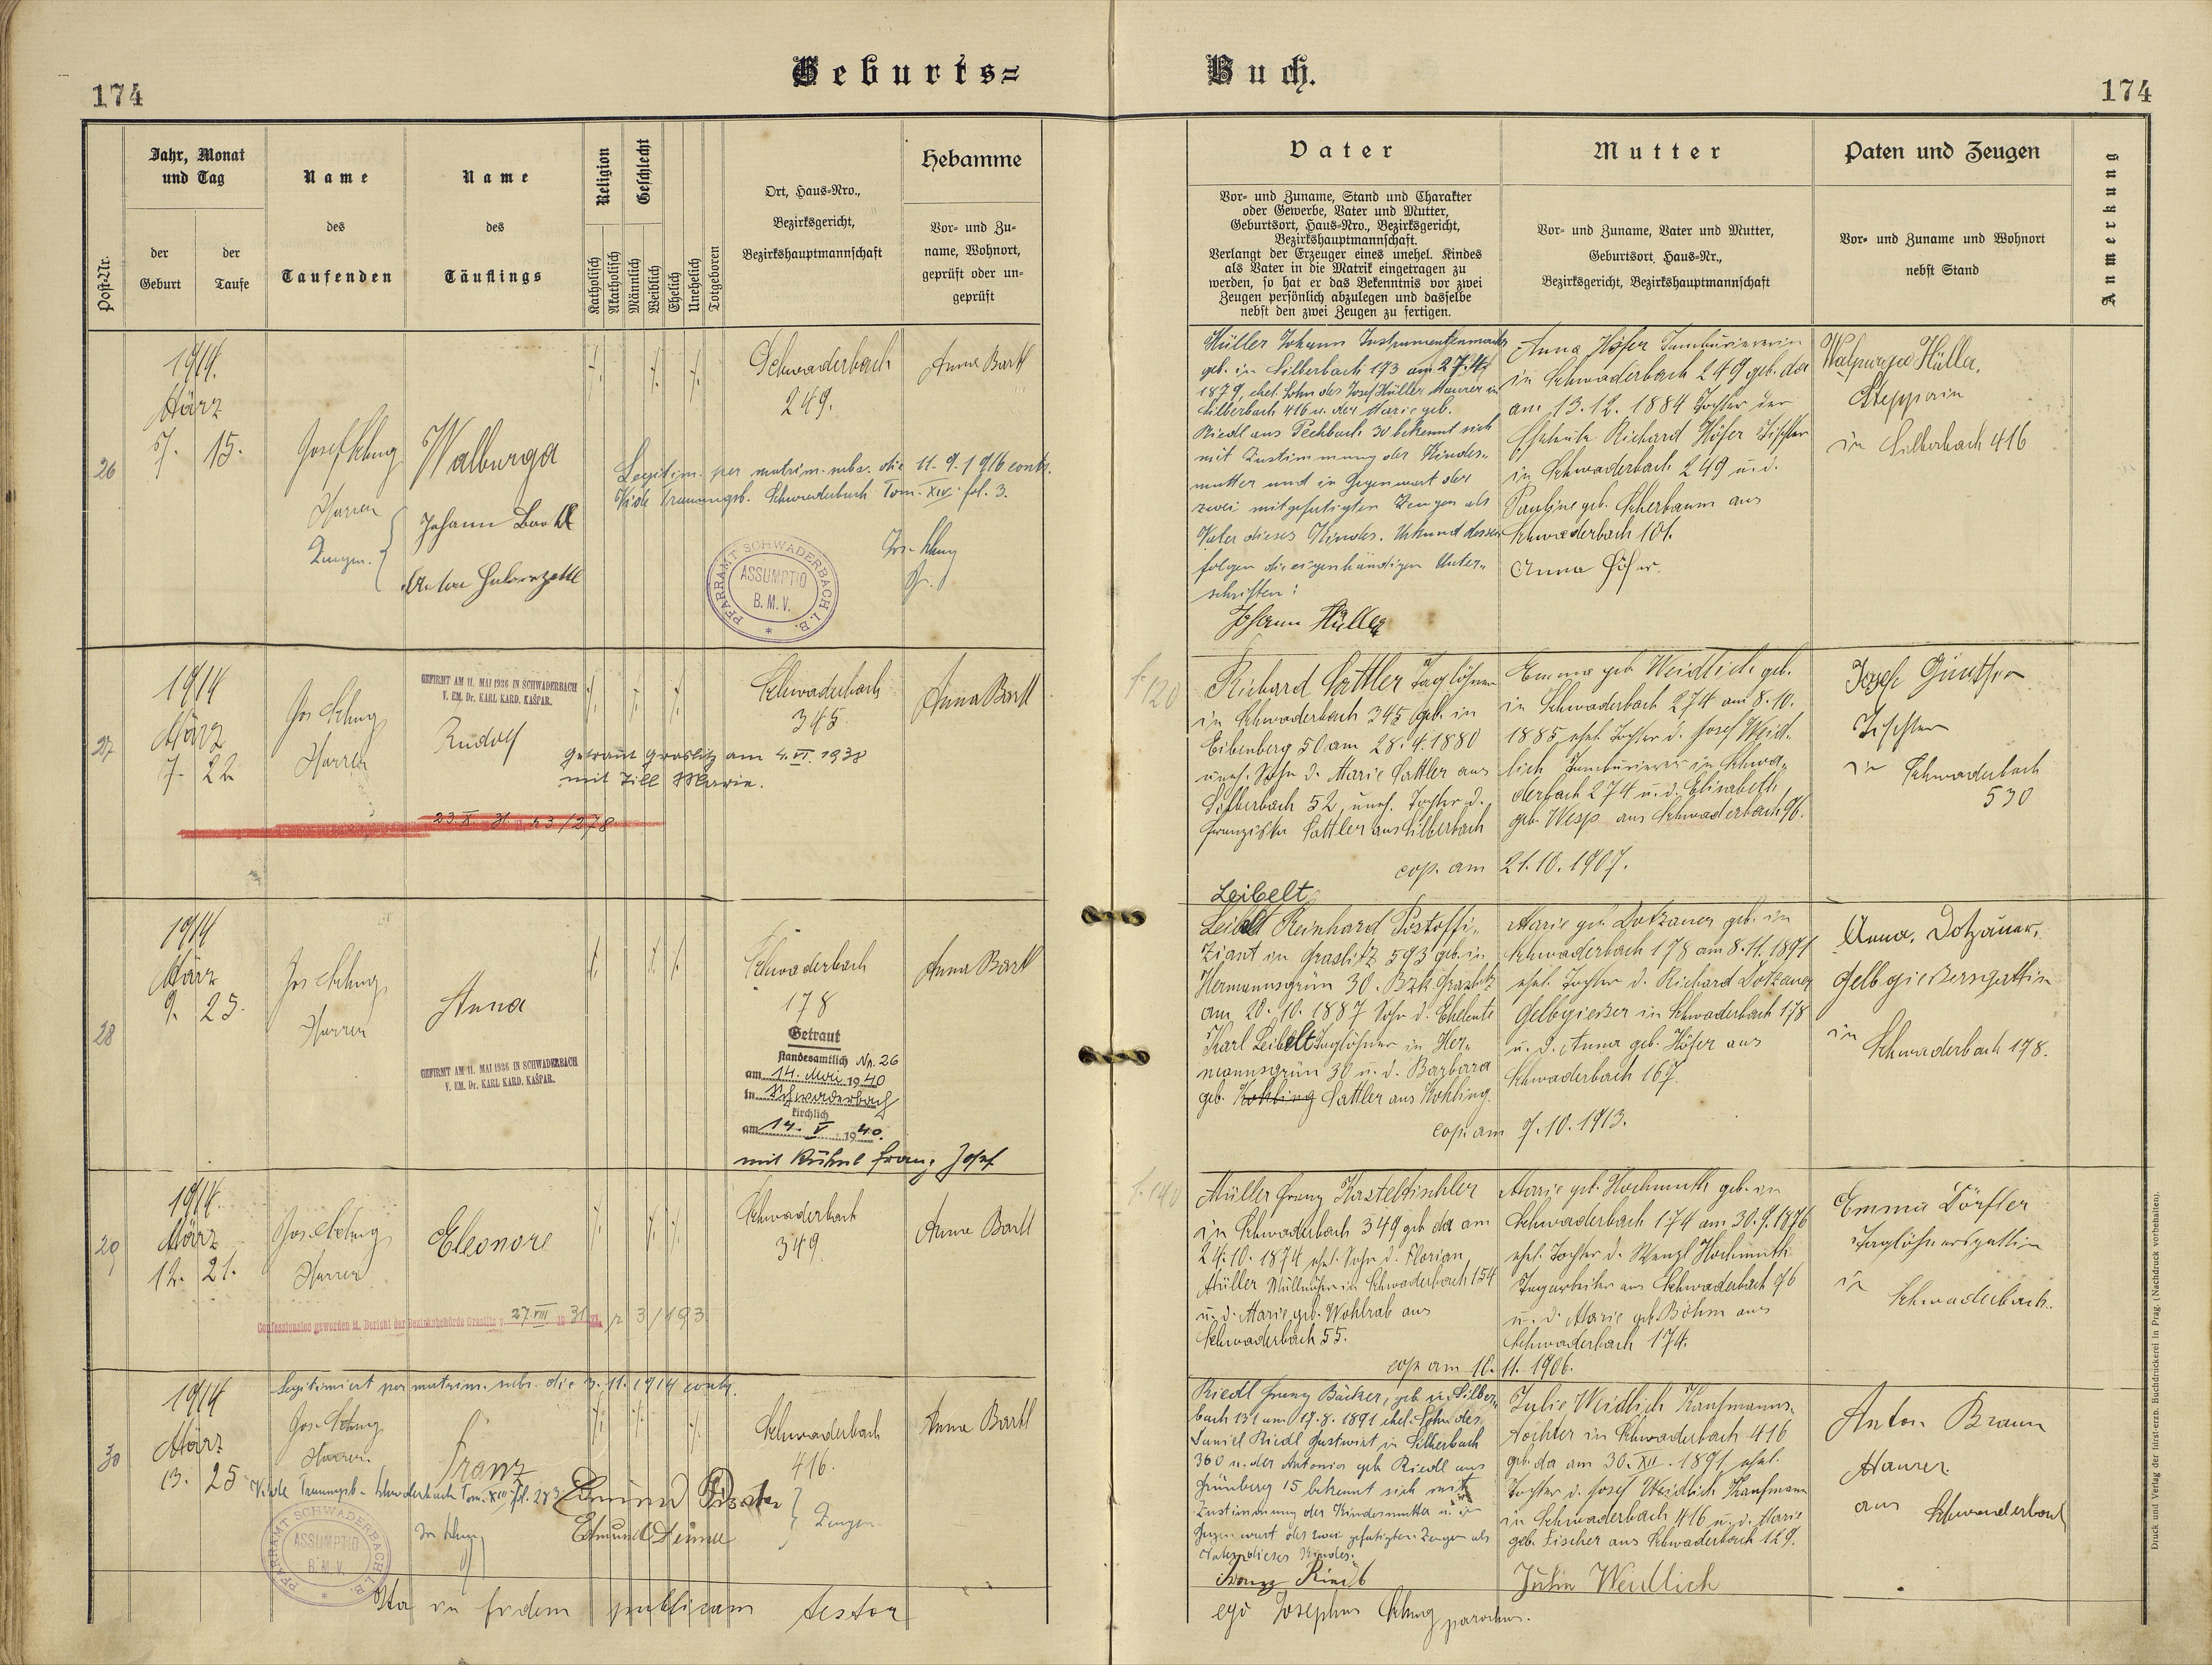 174
Geburts=
Buch.
174
Post-Nr.
Jahr, Monat
und Tag
der
Geburt
der
Taufe
Name
des
Taufenden
Name
des
Täuflings
Religion
Katholisch
Akatholisch
Geschlecht
Männlich
Weiblich
Ehelich
Unehelich
Totgeboren
Ort, Haus-Nro.,
Bezirksgericht,
Bezirkshauptmannschaft
Hebamme
Vor- und Zu-
name, Wohnort,
geprüft oder un-
geprüft
Vater
Vor- und Zuname, Stand und Charakter
oder Gewerbe, Vater und Mutter,
Geburtsort, Haus-Nro., Bezirksgericht,
Bezirkshauptmannschaft.
Verlangt der Erzeuger eines unehel. Kindes
als Vater in die Matrik eingetragen zu
werden, so hat er das Bekenntnis vor zwei
Zeugen persönlich abzulegen und dasselbe
nebst den zwei Zeugen zu fertigen.
Mutter
Vor- und Zuname, Vater und Mutter,
Geburtsort, Haus-Nr.,
Bezirksgericht, Bezirkshauptmannschaft
Paten und Zeugen
Vor- und Zuname und Wohnort
nebst Stand
Anmerkung
26
1914.
März
15.
Walburga
Zeugen.
Johann Bartl
Anton
Schwaderbach
249.
Anna Bartl
Legitim. per matrim. subs. die 11. 9. 1916 contr.
Vide Trauungsb. Schwaderbach Tom. XIV. fol. 3.
PFARRAMT SCHWADERBACH I. B.
ASSUMPTIO
B. M. V.
Müller Johann Instrumentenmacher
geb. in Silberbach 193 am 27. 4.
1879, ehel. Sohn des Josef Müller Maurer in
Silberbach 416 u. der Marie geb.
Riedl aus Pechbach 30 bekennt sich
mit Zustimmung der Kindes-
mutter und in Gegenwart der
zwei mitgefertigten Zeugen als
Vater dieses Kindes. Urkund dessen
folgen die eigenhändigen Unter-
schriften:
Johann Müller
Anna Höfer Tambouriererin
in Schwaderbach 249 geb. da
am 13. 12. 1884 Tochter der
Eheleute Richard Höfer Tischler
in Schwaderbach 249 u. d.
Pauline geb. Scherbaum aus
Schwaderbach 101.
Anna Höfer.
Walpurga Müller,
Stepperin
in Silberbach 416
27
1914
März
7. 22
GEFIRMT AM 11. MAI 1936 IN SCHWADERBACH
V. EM. Dr. KARL KARD. KAŠPAR.
Rudolf
Getraut Graslitz am 4. VI. 1938
mit Till Marie.
Schwaderbach
345.
Anna Bartl
f. 120
Richard Sattler Taglöhner
in Schwaderbach 345 geb. in
Eibenberg 50 am 28. 4. 1880
uneh. Sohn d. Marie Sattler aus
Silberbach 52, uneh. Tochter d.
Franziska Sattler aus Silberbach
Emma geb. Weidlich geb.
in Schwaderbach 274 am 8. 10.
1885, ehel. Tochter d. Josef Weid-
lich Tambourierer in Schwa-
derbach 274 u. d. Elisabeth
geb. Wesp aus Schwaderbach 96.
cop. am 21. 10. 1907.
Josef Günther
Tischler
in Schwaderbach
530
28
1914
März
9. 25.
Anna
GEFIRMT AM 11. MAI 1936 IN SCHWADERBACH
V. EM. Dr. KARL KARD. KAŠPAR.
Schwaderbach
178
Getraut
standesamtlich Nr. 26
am 14. Mai 1940
in Schwaderbach
kirchlich
am 14. V 1940.
mit Kühnl Franz Josef
Anna Bartl
Leibelt
Leibelt Reinhard Postoffi-
ziant in Graslitz 593 geb. in
Hermannsgrün 30. Bzk. Graslitz
am 20. 10. 1887 Sohn d. Eheleute
Karl Leibelt Taglöhner in Her-
mannsgrün 30 u. d. Barbara
geb. Kohling Sattler aus Kohling.
Marie geb. Dotzauer geb. in
Schwaderbach 178 am 8. 11. 1891
ehel. Tochter d. Richard Dotzauer
Gelbgiesser in Schwaderbach 178
u. d. Anna geb. Höfer aus
Schwaderbach 167.
cop. am 7. 10. 1913.
Anna Dotzauer,
Gelbgiessersgattin
in
Schwaderbach 178.
29
1914.
März
12. 21.
Eleonore
Confessionslos geworden lt. Bericht der Bezirksbehörde Graslitz v. 27. VIII 1931
Schwaderbach
349.
Anna Bartl
f. 140
Müller Franz Kasteltischler
in Schwaderbach 349 geb. da am
24. 10. 1874 ehel. Sohn d. Florian
Müller in Schwaderbach 154
u. d. Marie geb. Wohlrab aus
Schwaderbach 55.
Marie geb. Hochmuth geb. in
Schwaderbach 174 am 30. 9. 1876
ehel. Tochter d. Wenzl Hochmuth
Tagarbeiter aus Schwaderbach 76
u. d. Marie geb. Böhm aus
Schwaderbach 174.
cop. am 10. 11. 1906.
Emma Dörfler
Taglöhnersgattin
in
Schwaderbach.
30
1914
März
13. 25
Legitimiert per matrim. subs. die 3. 11. 1914 contr.
Franz
Vide Trauungsb. Schwaderbach Tom. XIII fol. 283
Edmund
Zeugen
Schwaderbach
416.
Anna Bartl
PFARRAMT SCHWADERBACH I. B.
ASSUMPTIO
B. M. V.
Riedl Franz Bäcker, geb. in Silber-
bach 131 am 17. 8. 1891 ehel. Sohn des
Daniel Riedl Gastwirt in Silberbach
360 u. der Antonia geb. Riedl aus
Grünberg 15 bekennt sich mit
Zustimmung der Kindesmutter u. in
Gegenwart der zwei gefertigten Zeugen als
Vater dieses Kindes.
Franz Riedl
Julie Weidlich Kaufmanns-
tochter in Schwaderbach 416
geb. da am 30. XII. 1891 ehel.
Tochter d. Josef Weidlich Kaufmann
in Schwaderbach 416 u. d. Marie
geb. Fischer aus Schwaderbach 129.
Julie Weidlich
Anton Braun
Maurer
aus Schwaderbach
Ita in fidem publicam testor
ego Josephus parochus.
Druck und Verlag der fürsterzb. Buchdruckerei in Prag. (Nachdruck vorbehalten).